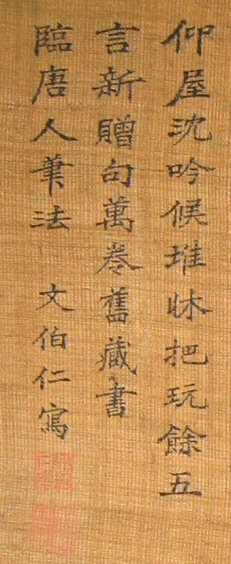 仰屋沈吟候堆牀把玩餘五
言新贈句萬卷舊藏書
臨唐人筆法 文伯仁寫